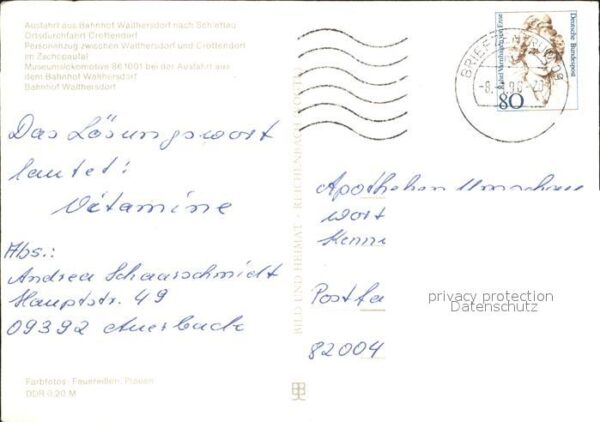 Ausfahrt aus Bahnhof Walthersdorf nach Schlettau
Ortsdurchfahrt Crottendorf
Personenzug zwischen Walthersdorf und Crottendorf
im Zschopautal
Museumslokomotive 86 1001 bei der Ausfahrt aus
dem Bahnhof Walthersdorf
Bahnhof Walthersdorf
Das Lösungswort
lautet:
Vitamine
Abs.:
Andrea Schaarschmidt
Hauptstr. 49
09392 Auerbach
Farbfotos: Feuereißen, Plauen
DDR 0,20 M
BILD UND HEIMAT · REICHENBACH
BRIEFZENTRUM 09
-8. 96-
Deutsche Bundespost
Rahel Varnhagen von Ense
80
Apotheken Umschau
Wort
Kenn
Postfa
82004
privacy protection
Datenschutz